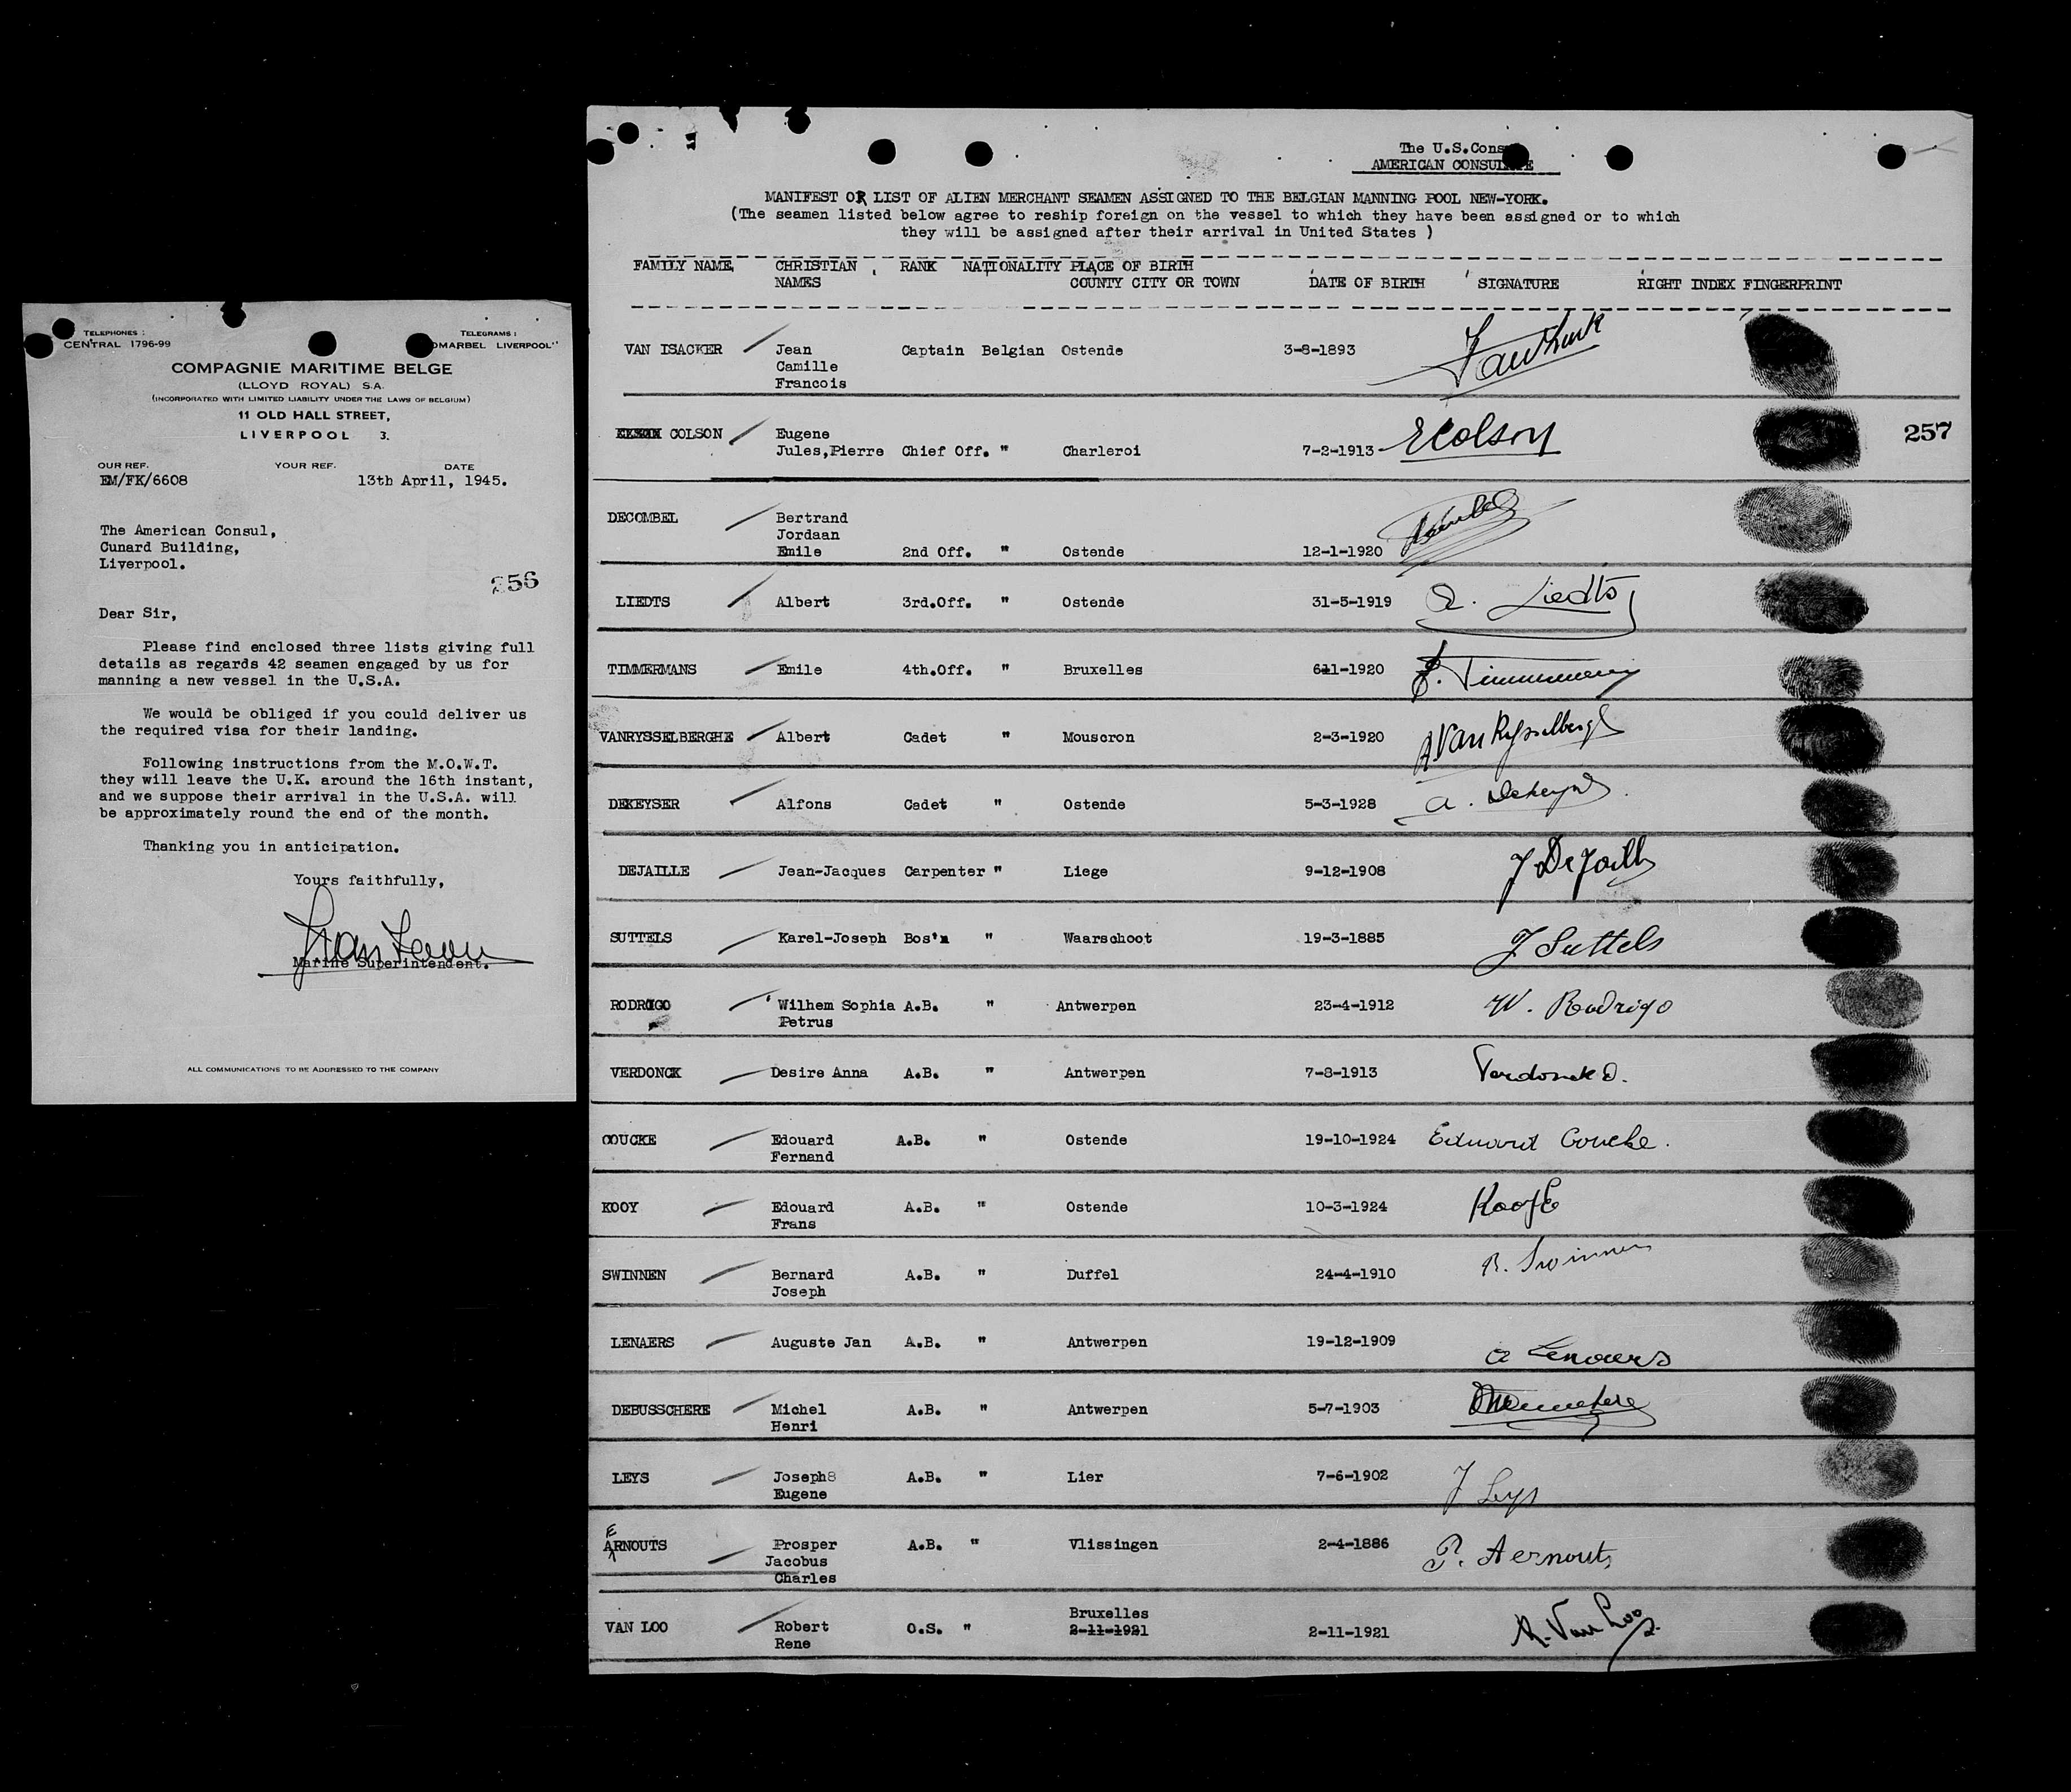 TELEPHONES :
CENTRAL 1796-99
TELEGRAMS :
OMARBEL LIVERPOOL"
COMPAGNIE MARITIME BELGE
(LLOYD ROYAL) S.A.
(INCORPORATED WITH LIMITED LIABILITY UNDER THE LAWS OF BELGIUM)
11 OLD HALL STREET,
LIVERPOOL 3.
OUR REF. YOUR REF. DATE
EM/FK/6608 13th April, 1945.
The American Consul,
Cunard Building,
Liverpool.
256
Dear Sir,
Please find enclosed three lists giving full
details as regards 42 seamen engaged by us for
manning a new vessel in the U.S.A.
We would be obliged if you could deliver us
the required visa for their landing.
Following instructions from the M.O.W.T.
they will leave the U.K. around the 16th instant,
and we suppose their arrival in the U.S.A. will
be approximately round the end of the month.
Thanking you in anticipation.
Yours faithfully,
Marine Superintendent.
ALL COMMUNICATIONS TO BE ADDRESSED TO THE COMPANY
The U.S.Cons
AMERICAN CONSULATE
MANIFEST OR LIST OF ALIEN MERCHANT SEAMEN ASSIGNED TO THE BELGIAN MANNING POOL NEW-YORK.
(The seamen listed below agree to reship foreign on the vessel to which they have been assigned or to which
they will be assigned after their arrival in United States )
FAMILY NAME, CHRISTIAN , RANK NATIONALITY PLACE OF BIRTH
NAMES COUNTY CITY OR TOWN DATE OF BIRTH SIGNATURE RIGHT INDEX FINGERPRINT
VAN ISACKER Jean Captain Belgian Ostende 3-8-1893
Camille
Francois
COLSON Eugene
Jules,Pierre Chief Off. " Charleroi 7-2-1913 EColson
257
DECOMBEL Bertrand
Jordaan
Emile 2nd Off. " Ostende 12-1-1920
LIEDTS Albert 3rd.Off. " Ostende 31-5-1919 A. Liedts
TIMMERMANS Emile 4th.Off. " Bruxelles 6-11-1920 E. Timmermans
VANRYSSELBERGHE Albert Cadet " Mouscron 2-3-1920 A Van Rysselberghe
DEKEYSER Alfons Cadet " Ostende 5-3-1928 A. Dekeyser
DEJAILLE Jean-Jacques Carpenter " Liege 9-12-1908 J Dejaille
SUTTELS Karel-Joseph Bos'n " Waarschoot 19-3-1885 J Suttels
RODRIGO Wilhem Sophia A.B. " Antwerpen 23-4-1912 W. Rodrigo
Petrus
VERDONCK Desire Anna A.B. " Antwerpen 7-8-1913 Verdonck D.
COUCKE Edouard A.B. " Ostende 19-10-1924 Eduard Coucke.
Fernand
KOOY Edouard A.B. " Ostende 10-3-1924 Kooy E
Frans
SWINNEN Bernard A.B. " Duffel 24-4-1910 B. Swinnen
Joseph
LENAERS Auguste Jan A.B. " Antwerpen 19-12-1909 A Lenaers
DEBUSSCHERE Michel A.B. " Antwerpen 5-7-1903
Henri
LEYS Josephs A.B. " Lier 7-6-1902 J Leys
Eugene
AERNOUTS Prosper A.B. " Vlissingen 2-4-1886 P. Aernouts
Jacobus
Charles
Bruxelles
VAN LOO Robert O.S. " 2-11-1921 2-11-1921 R. Van Loo
Rene